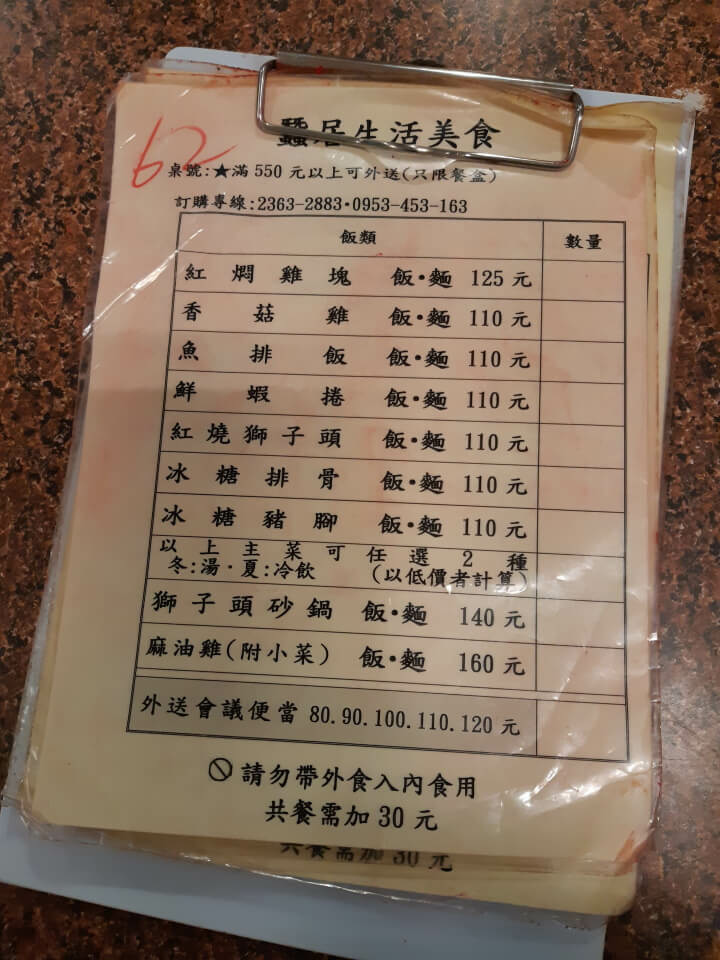 62
蠶居生活美食
桌號:★滿550元以上可外送(只限餐盒)
訂購專線:2363-2883•0953-453-163
飯類 數量
紅燜雞塊 飯•麵 125元
香菇雞 飯•麵 110元
魚排飯 飯•麵 110元
鮮蝦捲 飯•麵 110元
紅燒獅子頭 飯•麵 110元
冰糖排骨 飯•麵 110元
冰糖豬腳 飯•麵 110元
以上主菜可任選2種
冬:湯•夏:冷飲 (以低價者計算)
獅子頭砂鍋 飯•麵 140元
麻油雞(附小菜) 飯•麵 160元
外送會議便當 80.90.100.110.120元
請勿帶外食入內食用
共餐需加30元
共餐需加30元